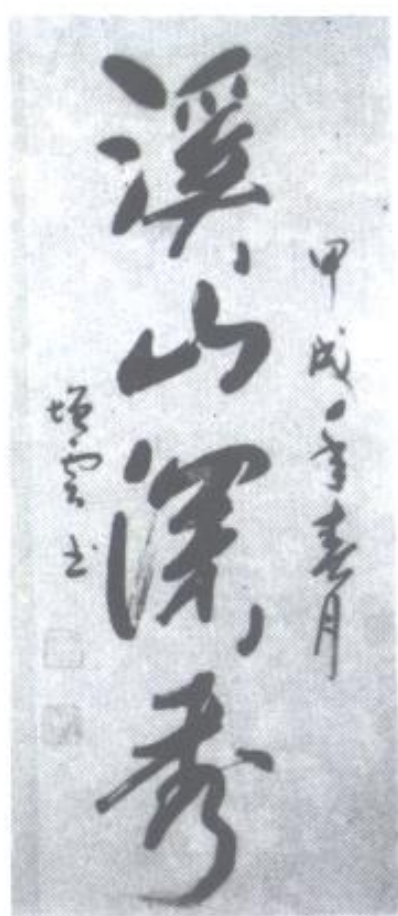 甲戌年春月
溪山深秀
垣雲书